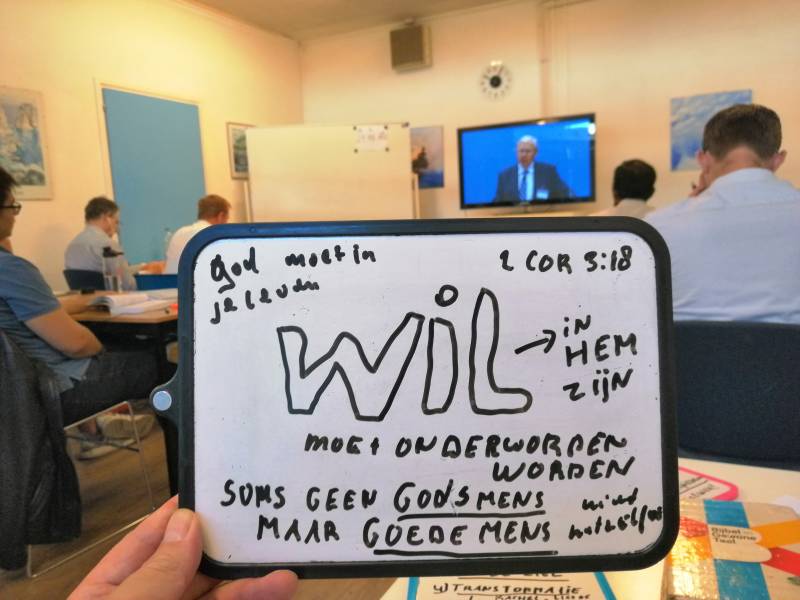 God moet in
je leven
2 COR 3:18
WiL
→ iN
HEM
ZijN
MOET ONDERWORPEN
WORDEN
SOMS GEEN GODSMENS
MAAR GOEDE MENS
Bijbel
Gewone
Taal
4) TRANSFORMATIE